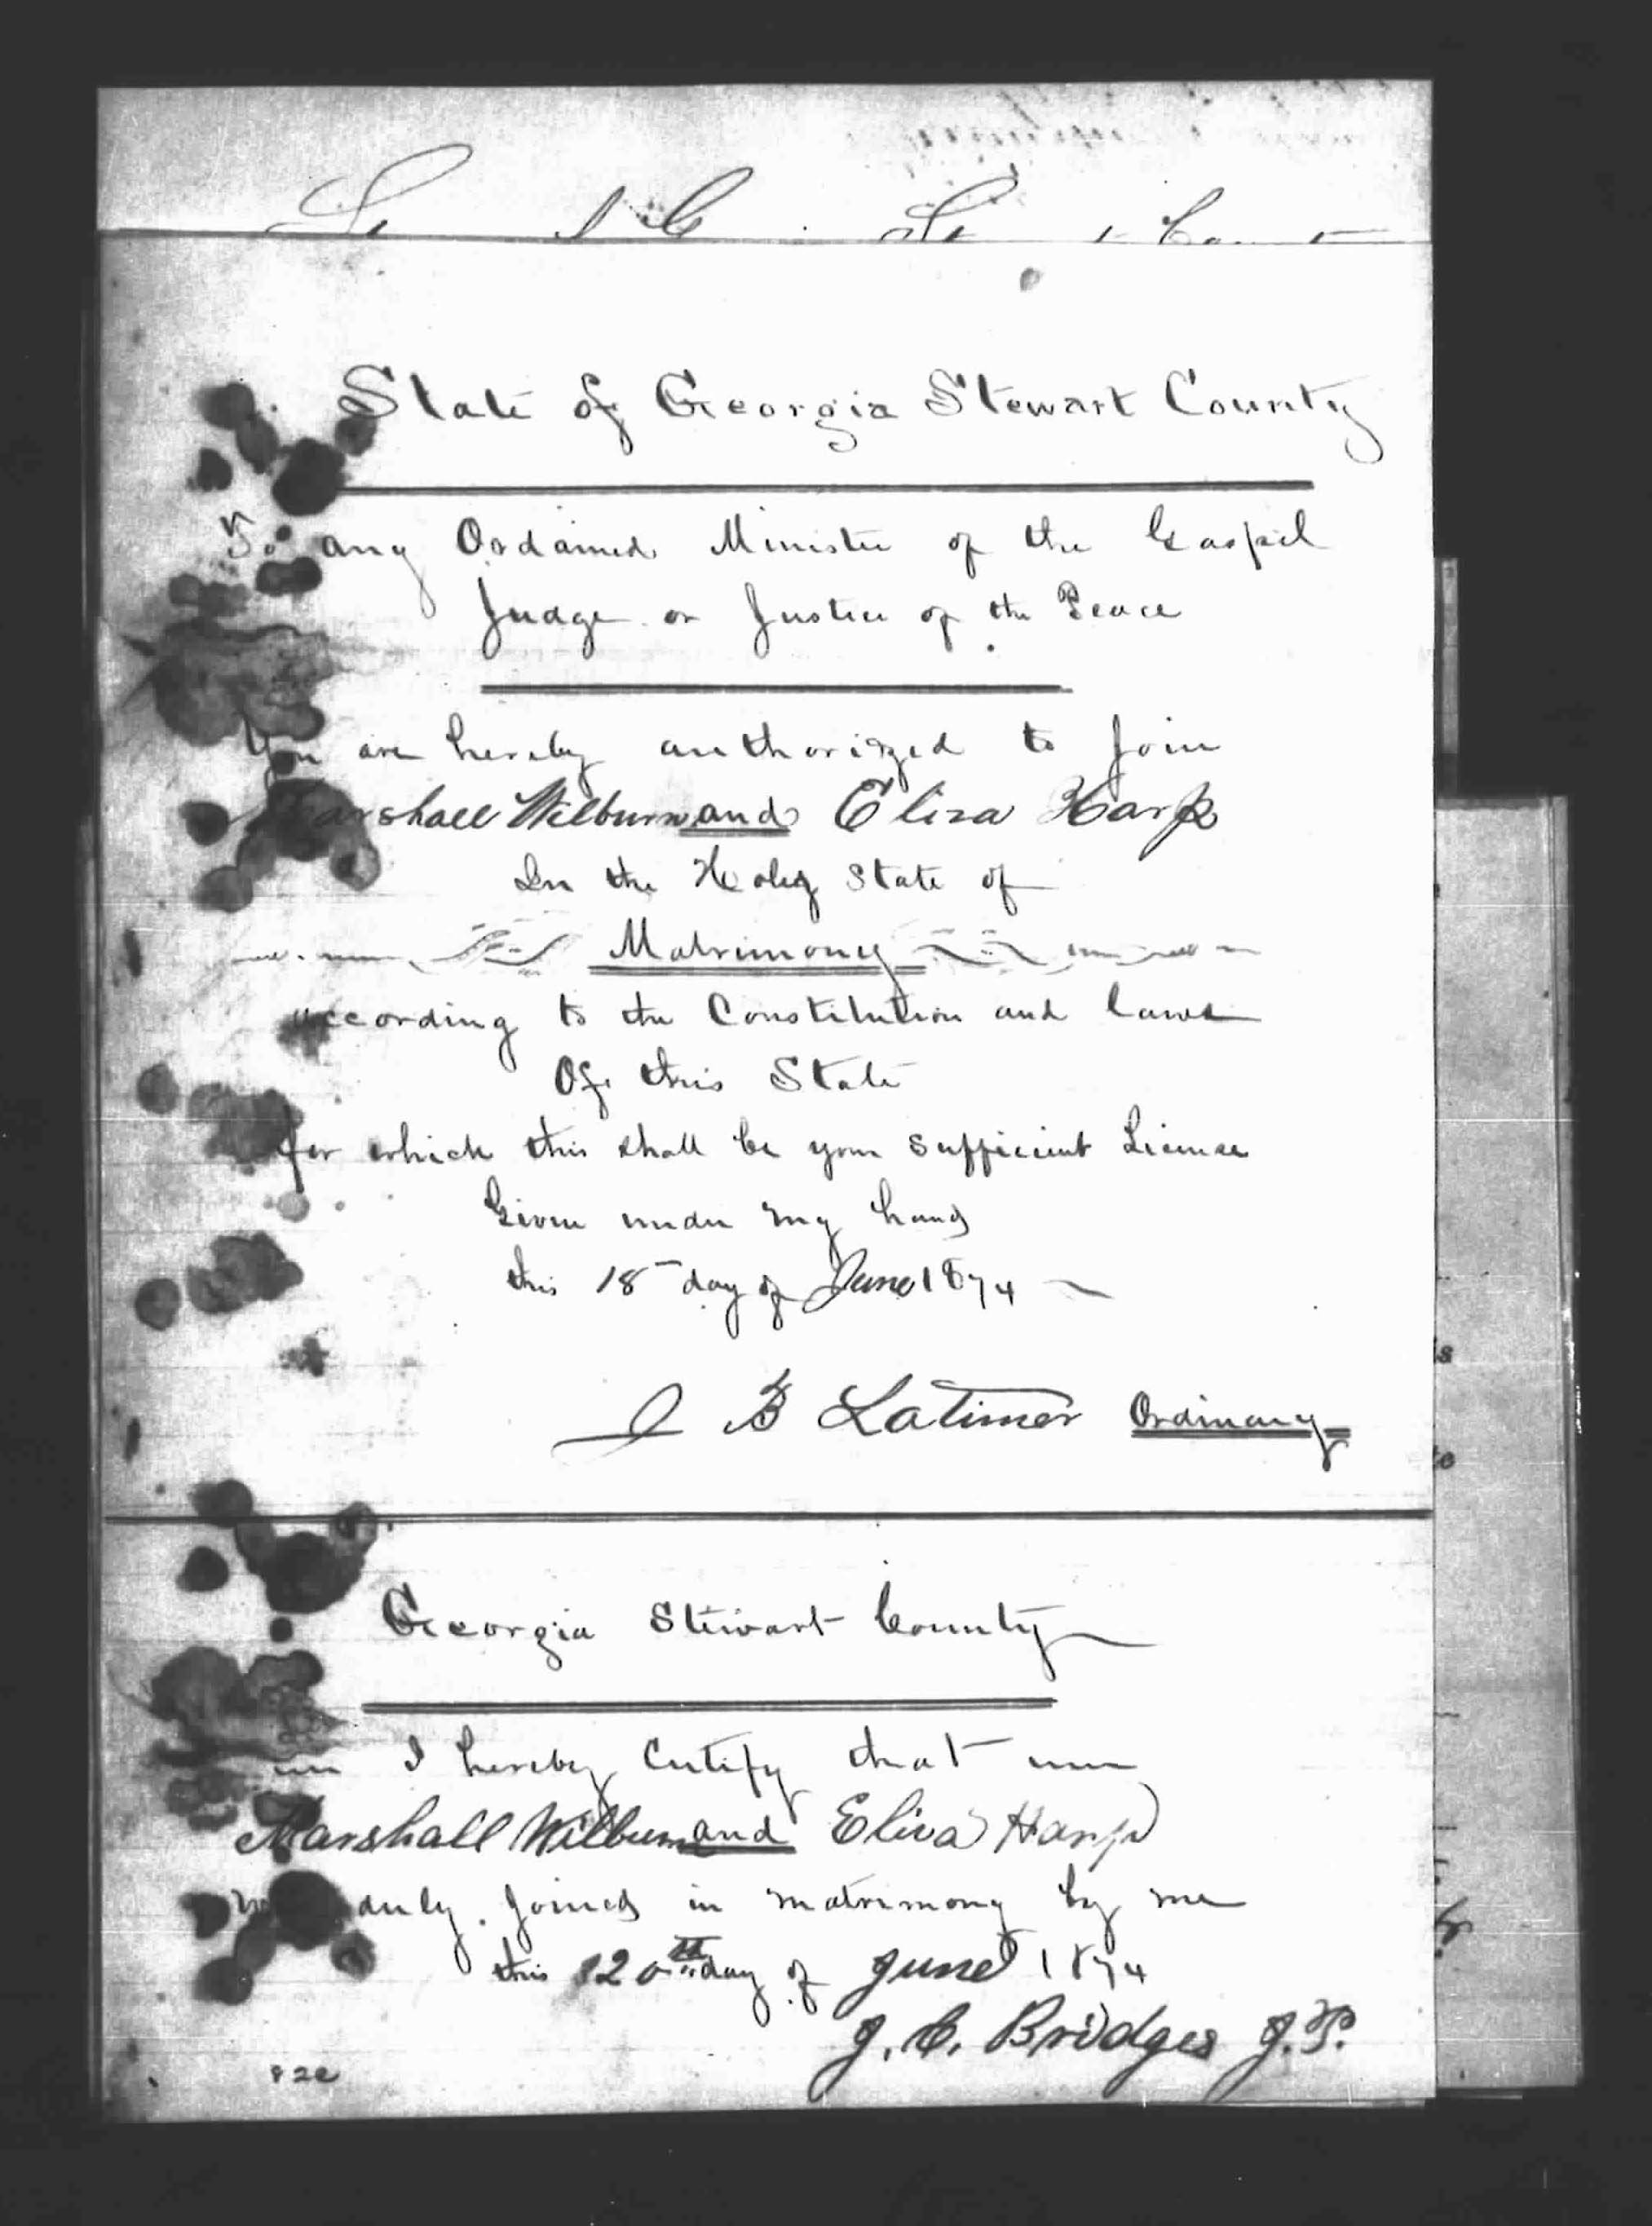 State of Georgia Stewart County
To any Ordained Minister of the Gospel
Judge or Justice of the Peace
You are hereby authorized to join
Marshall Wilburn and Eliza Harp
In the Holy State of
Matrimony
according to the Constitution and laws
Of this State
for which this shall be your sufficient License
Given under my hand
this 18 day of June 1874
J B Latimer Ordinary
Georgia Stewart County
I hereby Certify that
Marshall Wilburn and Eliza Harp
duly joined in matrimony by me
this 20th day of June 1874
J. C. Bridges J.P.